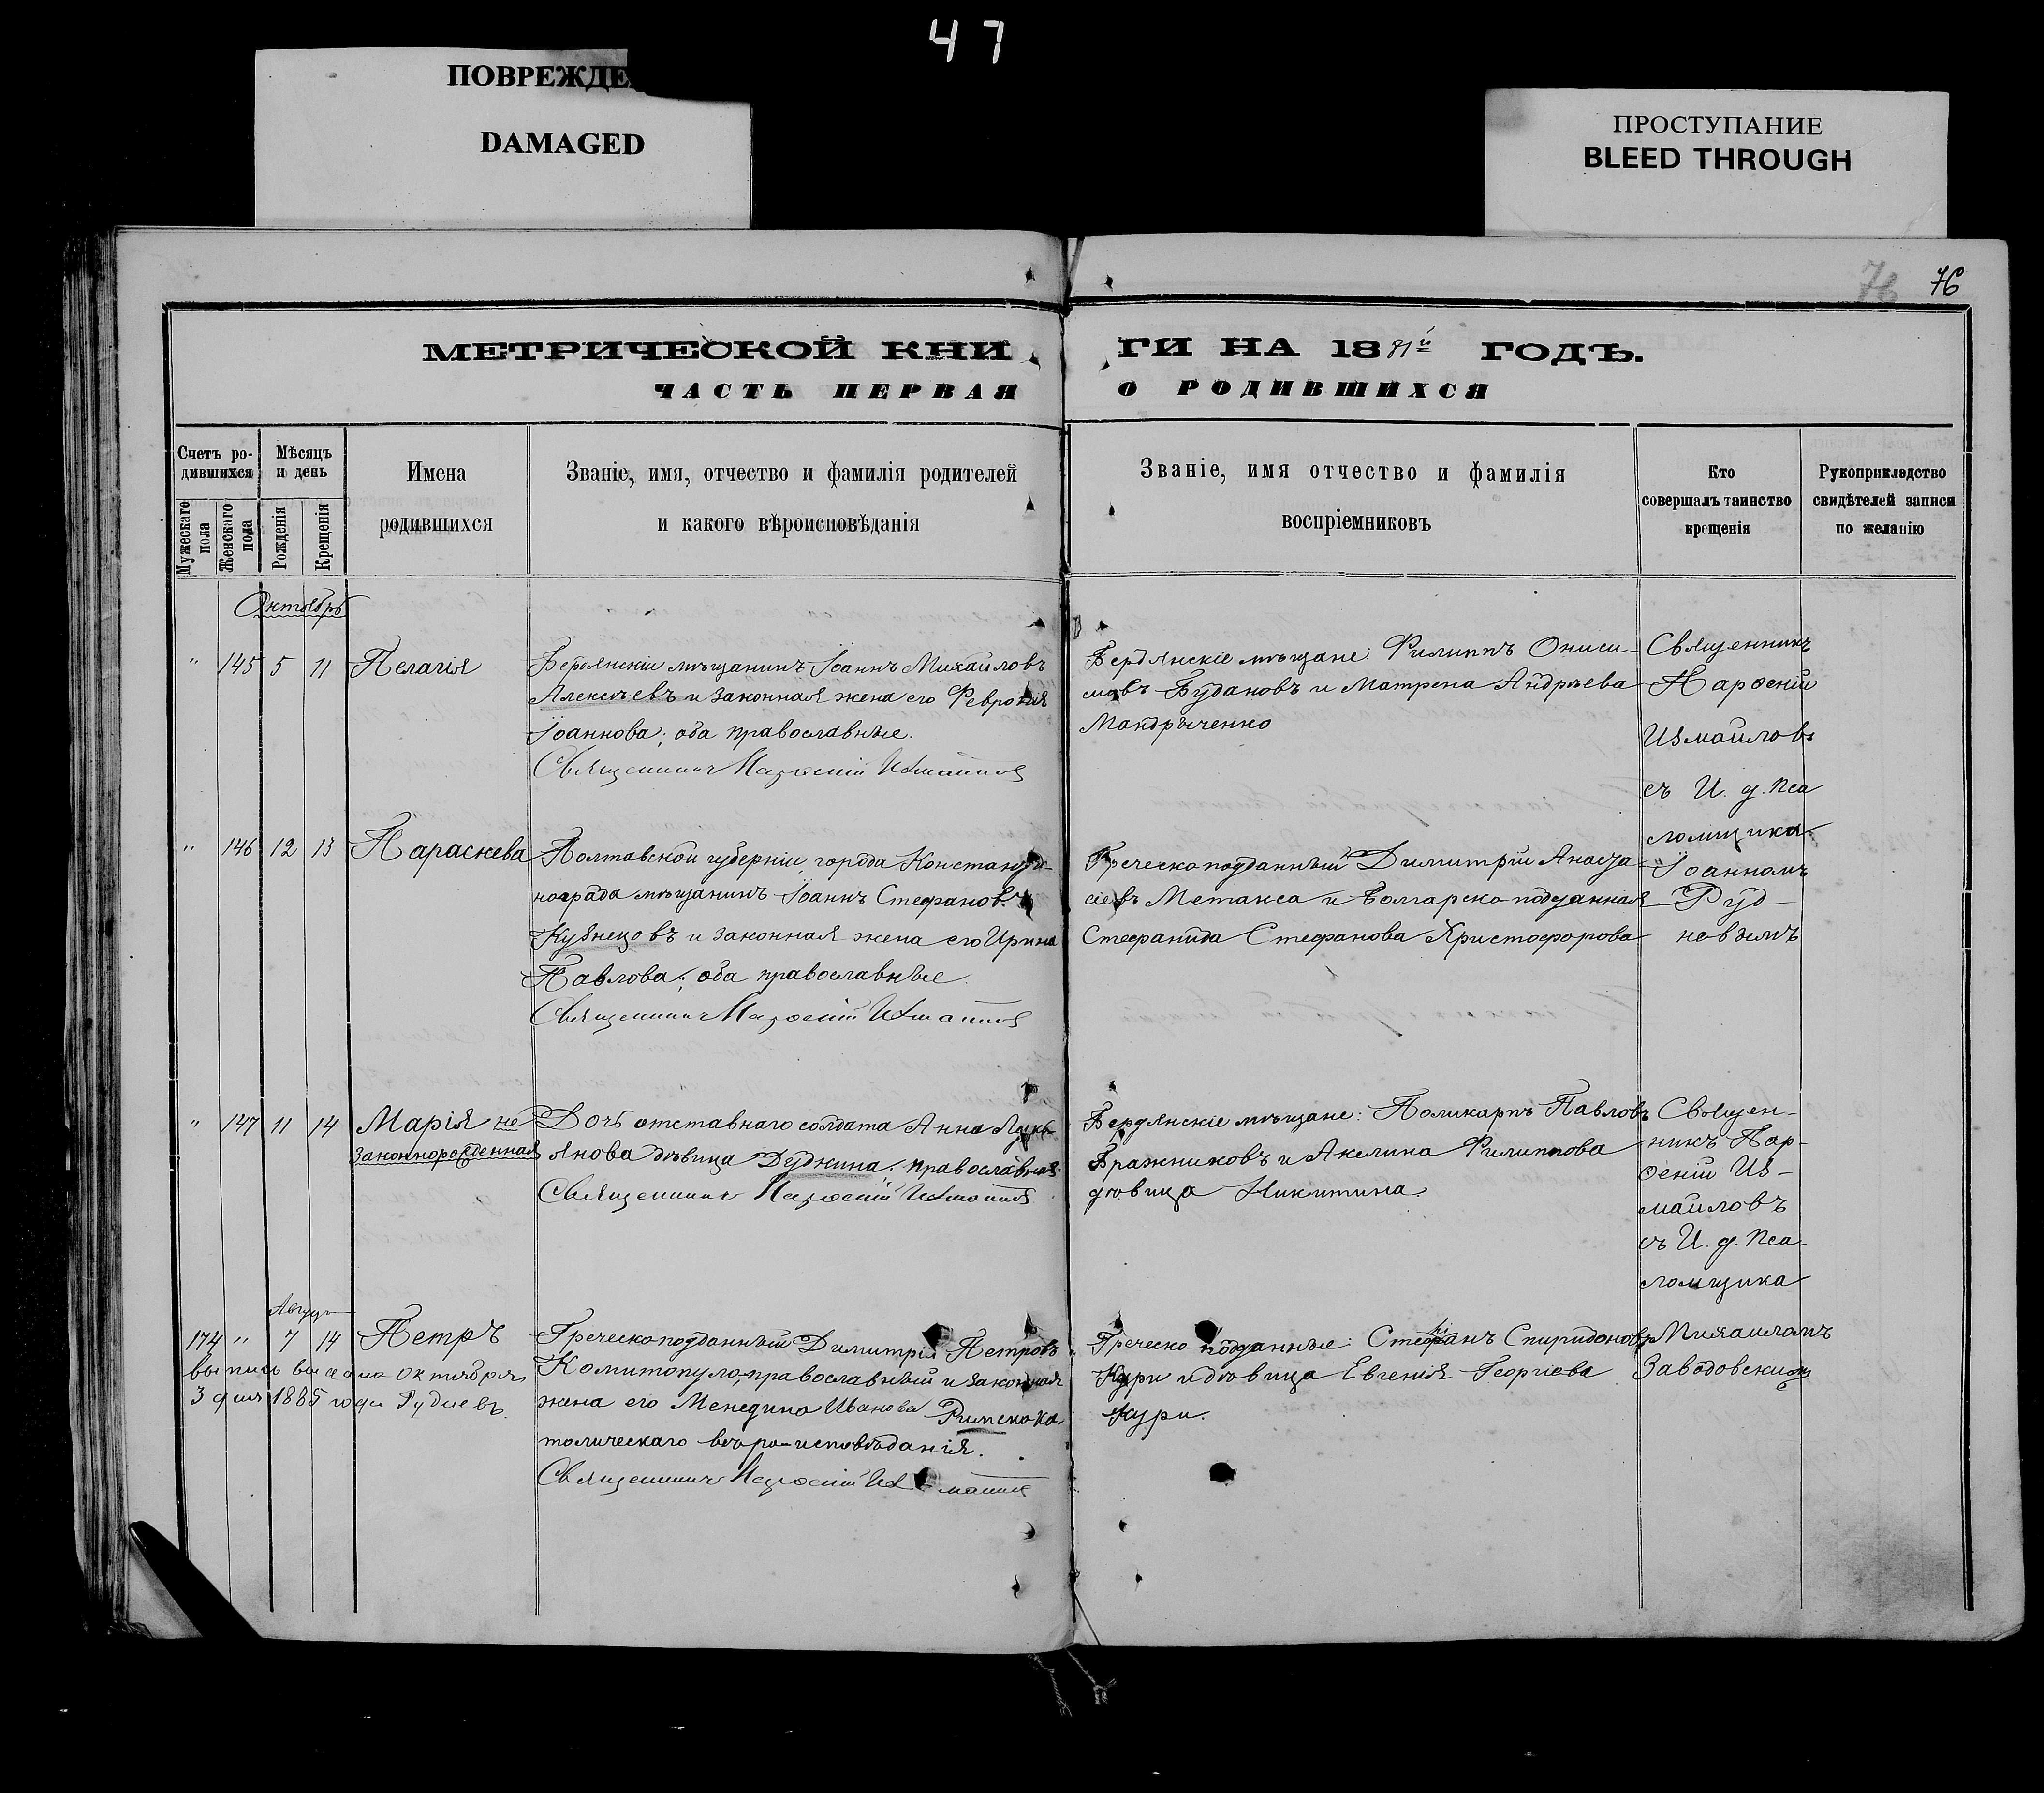 47
ПОВРЕЖДЕ
DAMAGED
ПРОСТУПАНИЕ
BLEED THROUGH
76
76
МЕТРИЧЕСКОЙ КНИ
ГИ НА 1881й ГОДЪ.
ЧАСТЬ ПЕРВАЯ
О РОДИВШИХСЯ
Счетъ ро-
дившихся
Мужескаго пола
Женскаго пола
Мѣсяцъ
и день
Рожденія
Крещенія
Имена
родившихся
Званіе, имя, отчество и фамилія родителей
и какого вѣроисповѣданія
Званіе, имя отчество и фамилія
воспріемниковъ
Кто
совершалъ таинство
крещенія
Рукоприкладство
свидѣтелей записи
по желанію
Октобрь
" 145 5 11 Пелагія
Бердянскій мѣщанинъ Іоаннъ Михаиловъ
Алексѣевъ и законная жена его Феврония
Іоаннова; оба православные.
Священникъ Парѳеній Измаиловъ
Бердянскіе мѣщане: Филиппъ Ониси-
мовъ Будановъ и Матрена Андрѣева
Мандрыченко
Священникъ
Парѳеній
Измайловъ
съ И. д. Пса
ломщика
Іоанномъ
Руд-
невымъ
" 146 12 13 Параскева
Полтавской губерніи, города Константи-
нограда мѣщанинъ Іоаннъ Стефановъ
Кузнецовъ и законная жена его Ирина
Павлова; оба православные
Священникъ Парѳеній Измаиловъ
Греческоподданный Димитрій Анаста
сіевъ Метакса и Болгарско подданная
Стефанида Стефанова Христофорова
" 147 11 14 Марія не
законнорожденная
Дочь отставнаго солдата Анна Лукь-
янова дѣвица Дудкина; православная.
Священникъ Парѳеній Измаиловъ
Бердянскіе мѣщане: Поликарпъ Павловъ
Бражниковъ и Акелина Филиппова
дѣвица Никитина
Священ-
никъ Пар-
ѳеній Из-
майловъ
съ И. д. Пса-
ломщика
Михаиломъ
Заводовскимъ
Августъ
174 " 7 14 Петръ
выпись выдана Октября
3 дня 1885 года
Греческоподданный Димитрій Петровъ
Комитопуло, православный и законная
жена его Менедина Иванова Римско Ка-
толическаго вѣро-исповѣданія.
Священникъ Парѳеній Измаиловъ
Греческо подданные: Стефанъ Спиридоновъ
Кури и дѣвица Евгенія Георгіева
Кури.